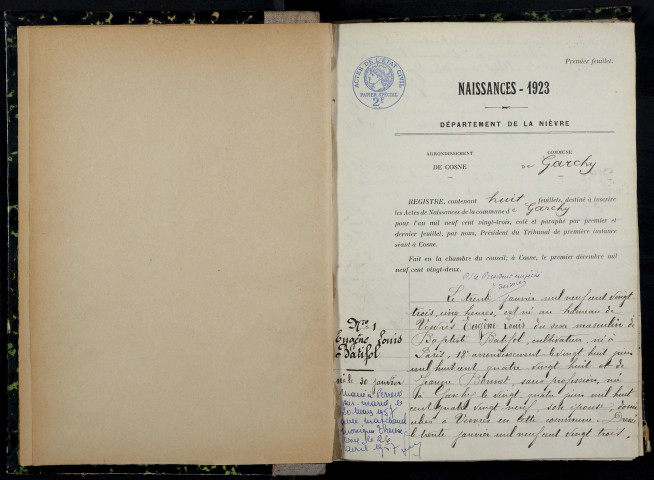 Premier feuillet.
ACTES DE L'ÉTAT CIVIL
PAPIER SPÉCIAL
2F
NAISSANCES - 1923
DÉPARTEMENT DE LA NIÈVRE
ARRONDISSEMENT
DE COSNE
COMMUNE
de Garchy
REGISTRE, contenant huit feuillets, destiné à inscrire
les Actes de Naissances de la commune de Garchy
pour l'an mil neuf cent vingt-trois, coté et paraphé par premier et
dernier feuillet, par nous, Président du Tribunal de première instance
séant à Cosne.
Fait en la chambre du conseil, à Cosne, le premier décembre mil
neuf cent vingt-deux.
P/le Président empêché
No 1
Eugène Louis
Batifol
né le 30 janvier
Marié à
sur-Marne, le
20 mars 1957
avec
Monique Thérèse
le 26
avril 1957
Le trente janvier mil neuf cent vingt
trois, cinq heures, est né au hameau de
Vesvres Eugène Louis du sexe masculin de
Baptiste Batifol, cultivateur, né à
Paris, 18e arrondissement le vingt huit juin
mil huit cent quatre vingt huit et de
Bonnot, sans profession, née
à Garchy le vingt quatre juin mil huit
cent quatre vingt neuf, son épouse, domi
ciliés à Vesvres en cette commune. Dressé
le trente janvier mil neuf cent vingt trois,